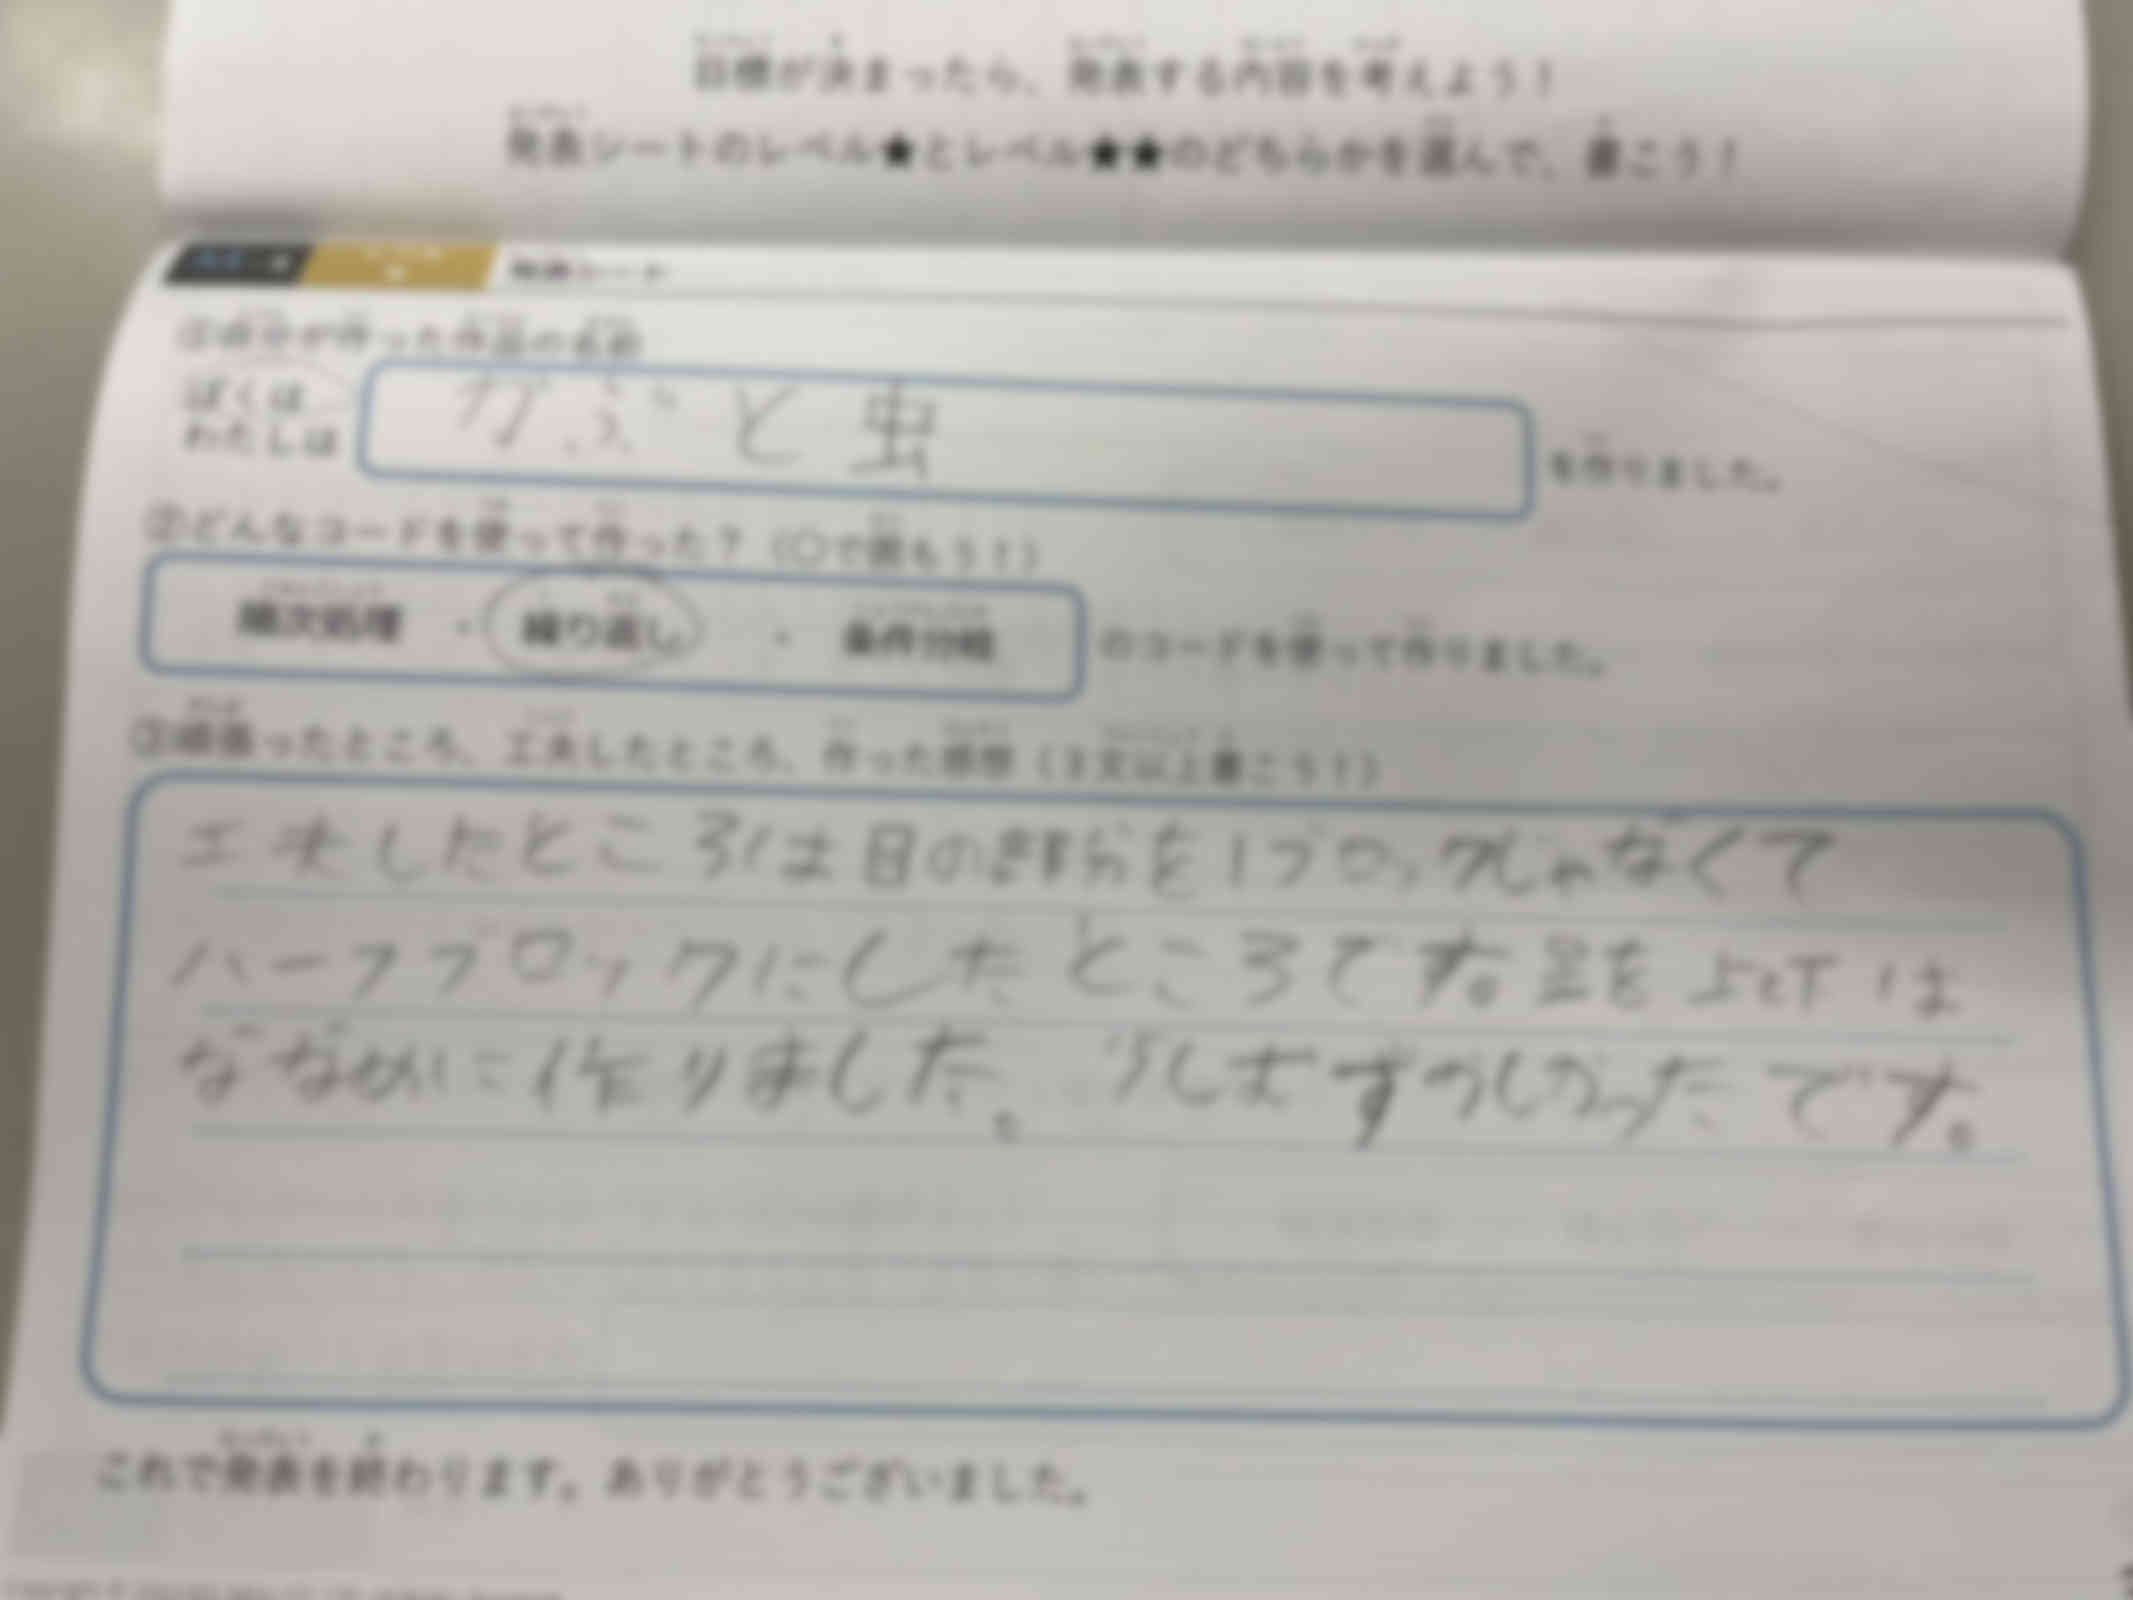 目標が決まったら、発表する内容を考えよう！
発表シートのレベル★とレベル★★のどちらかを選んで、書こう！
発表シート
①自分が作った作品の名前
ぼくは
わたしは
かぶと虫
を作りました。
②どんなコードを使って作った？（○で囲もう！）
順次処理・繰り返し・条件分岐
のコードを使って作りました。
③頑張ったところ、工夫したところ、作った感想（3文以上書こう！）
工夫したところは目の部分を1ブロックじゃなくて
ハーフブロックにしたところです。足を上と下は
ななめに作りました。少しむずかしかったです。
これで発表を終わります。ありがとうございました。